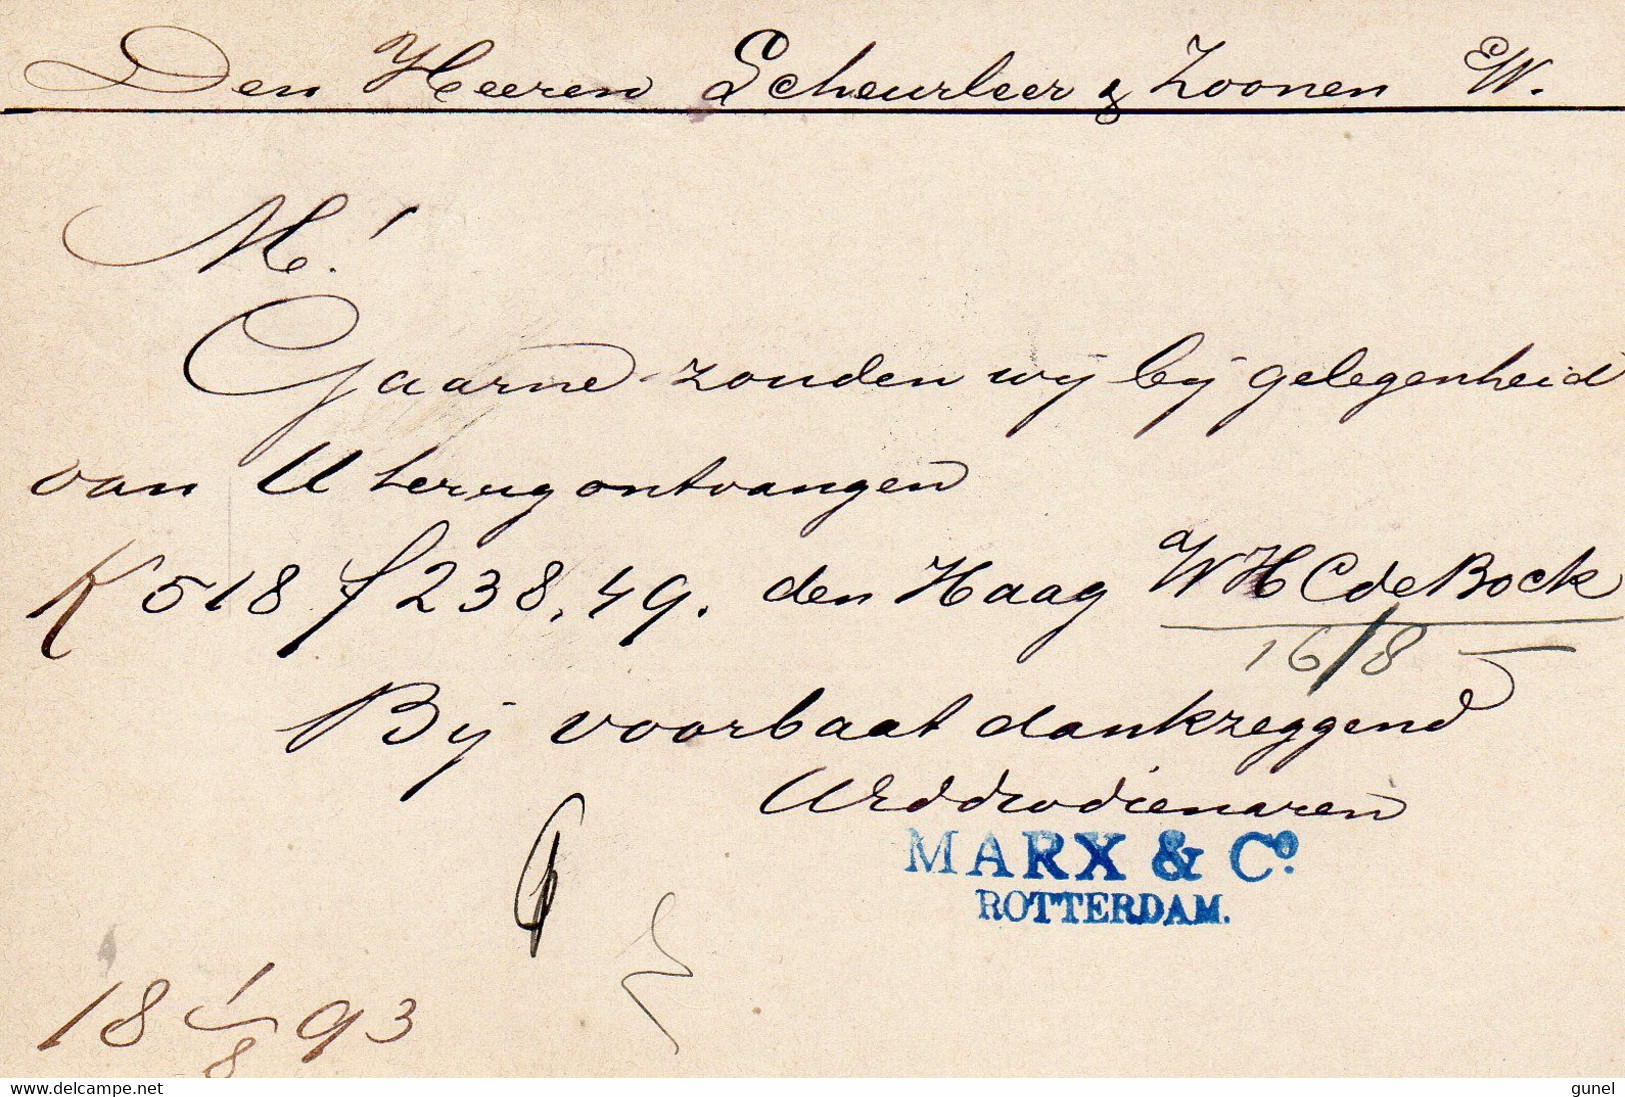 Den Heeren Scheurleer & Zoonen EW.
M!
Gaarne zonden wij bij gelegenheid
van U terugontvangen
K 518 f 238,49. den Haag WHC de Bock
16/8
Bij voorbaat dankzeggend
UEddwdienaren
MARX & Co.
ROTTERDAM.
18 1/8 93
www.delcampe.net
gunel